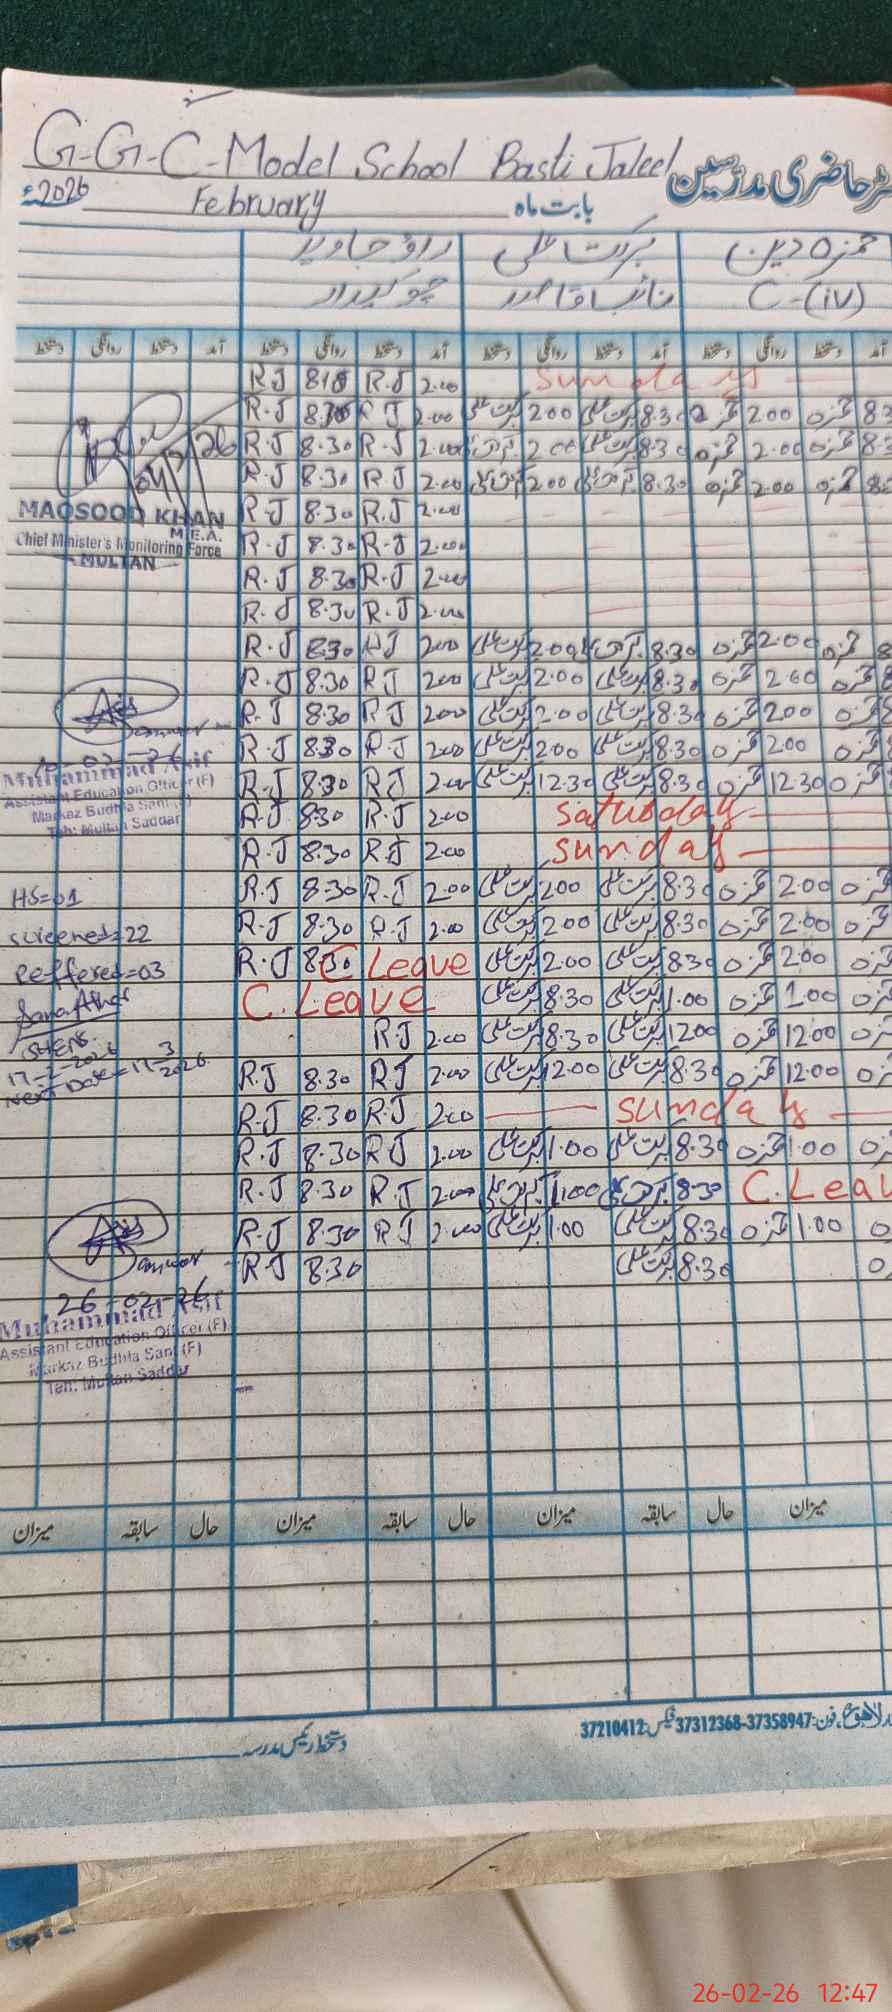 G-G-C-Model School Basti Jaleel
ٹر حاضری مدرسین
2026ء February بابت ماہ
حمزہ دین برکت علی راؤ جاوید
C-(iv) نائب قاصد چوکیدار
آمد دستخط روانگی دستخط آمد دستخط روانگی دستخط آمد دستخط روانگی دستخط آمد دستخط روانگی دستخط
R.J R.J 2.00 Sunday
R.J 8.30 R.J 2.00 برکت علی 2.00 برکت علی 8.30 حمزہ 2.00 حمزہ
R.J 8.30 R.J 2.00 برکت علی 2.00 برکت علی 8.30 حمزہ 2.00 حمزہ
R.J 8.30 R.J 2.00 برکت علی 2.00 برکت علی 8.30 حمزہ 2.00 حمزہ
R.J 8.30 R.J 2.00
R.J 8.30 R.J 2.00
R.J 8.30 R.J 2.00
R.J 8.30 R.J 2.00
R.J 8.30 R.J 2.00 برکت علی 2.00 برکت علی 8.30 حمزہ 2.00 حمزہ
R.J 8.30 R.J 200 برکت علی 2.00 برکت علی 8.30 حمزہ 200 حمزہ
R.J 8.30 R.J 200 برکت علی 2.00 برکت علی 8.30 حمزہ 200 حمزہ
R.J 830 R.J 200 برکت علی 200 برکت علی 8.30 حمزہ 200 حمزہ
R.J 8.30 R.J 200 برکت علی 12.30 برکت علی 8.30 حمزہ 12.30 حمزہ
R.J 8.30 R.J 200 Saturday
R.J 8.30 R.J 200 Sunday
R.J 8.30 R.J 200 برکت علی 200 برکت علی 8.30 حمزہ 2.00
R.J 8.30 R.J 2.00 برکت علی 2.00 برکت علی 8.30 حمزہ 2.00
R.J 830 C Leave برکت علی 2.00 برکت علی 830 حمزہ 200
C. Leave برکت علی 8.30 برکت علی 1.00 حمزہ 1.00
R.J 2.00 برکت علی 8.30 برکت علی 1200 حمزہ 12.00
R.J 8.30 R.J 2.00 برکت علی 12.00 برکت علی 8.30 حمزہ 12.00
R.J 8.30 R.J 200 Sunday
R.J 8.30 R.J 2.00 برکت علی 1.00 برکت علی 8.30 حمزہ 1.00
R.J 8.30 R.J 2.00 برکت علی 1.00 برکت علی 8.30 C.Leav
R.J 8.30 R.J 2.00 برکت علی 1.00 برکت علی 8.30 حمزہ 1.00
R.J 8.30 برکت علی 8.30
MAQSOOD KHAN
M.E.A.
Chief Minister's Monitoring Force
MULTAN
10-02-26
Muhammad Asif
Assistant Education Officer (F)
Markaz Budhla Sant (F)
Teh: Multan Saddar
HS=01
Screened=22
Reffered=03
17-2-2026
Next Date=17-3-2026
26-02-26
Muhammad Asif
Assistant Education Officer (F)
Markaz Budhla Sant (F)
Teh: Multan Saddar
میزان حال سابقہ میزان حال سابقہ میزان حال سابقہ میزان
لاہور، فون: 37358947-37312368 فیکس: 37210412
دستخط رئیس مدرسہ
26-02-26 12:47